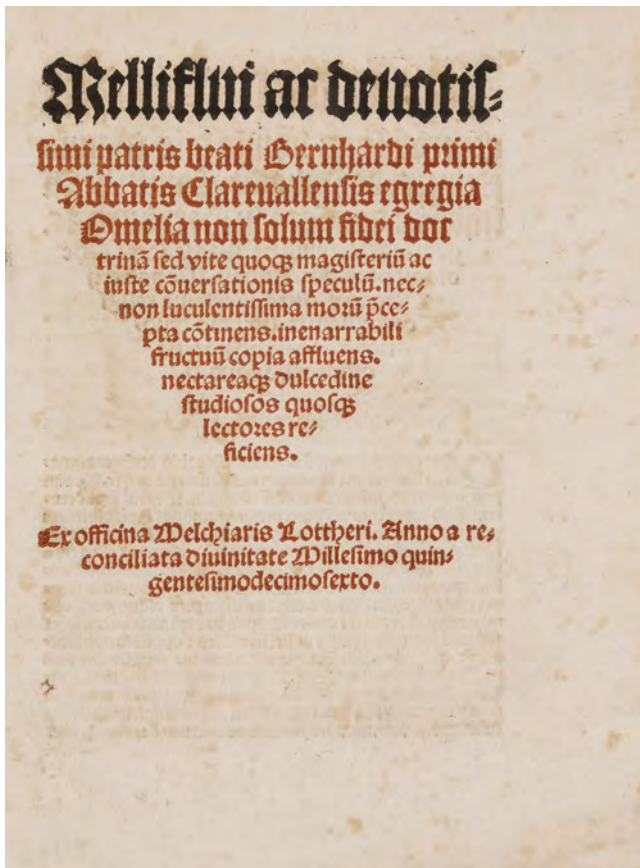 Melliflui ac deuotis⸗
simi patris beati Bernhardi primi
Abbatis Clareuallensis egregia
Omelia non solum fidei doc
trinā sed vite quoqꝫ magisteriū ac
iuste cōuersationis speculū. nec⸗
non luculentissima morū p̄ce⸗
pta cōtinens. inenarrabili
fructuū copia affluens.
nectareaqꝫ dulcedine
studiosos quosqꝫ
lectores re⸗
ficiens.
Ex officina Melchiaris Lottheri. Anno a re⸗
conciliata diuinitate Millesimo quin⸗
gentesimodecimosexto.